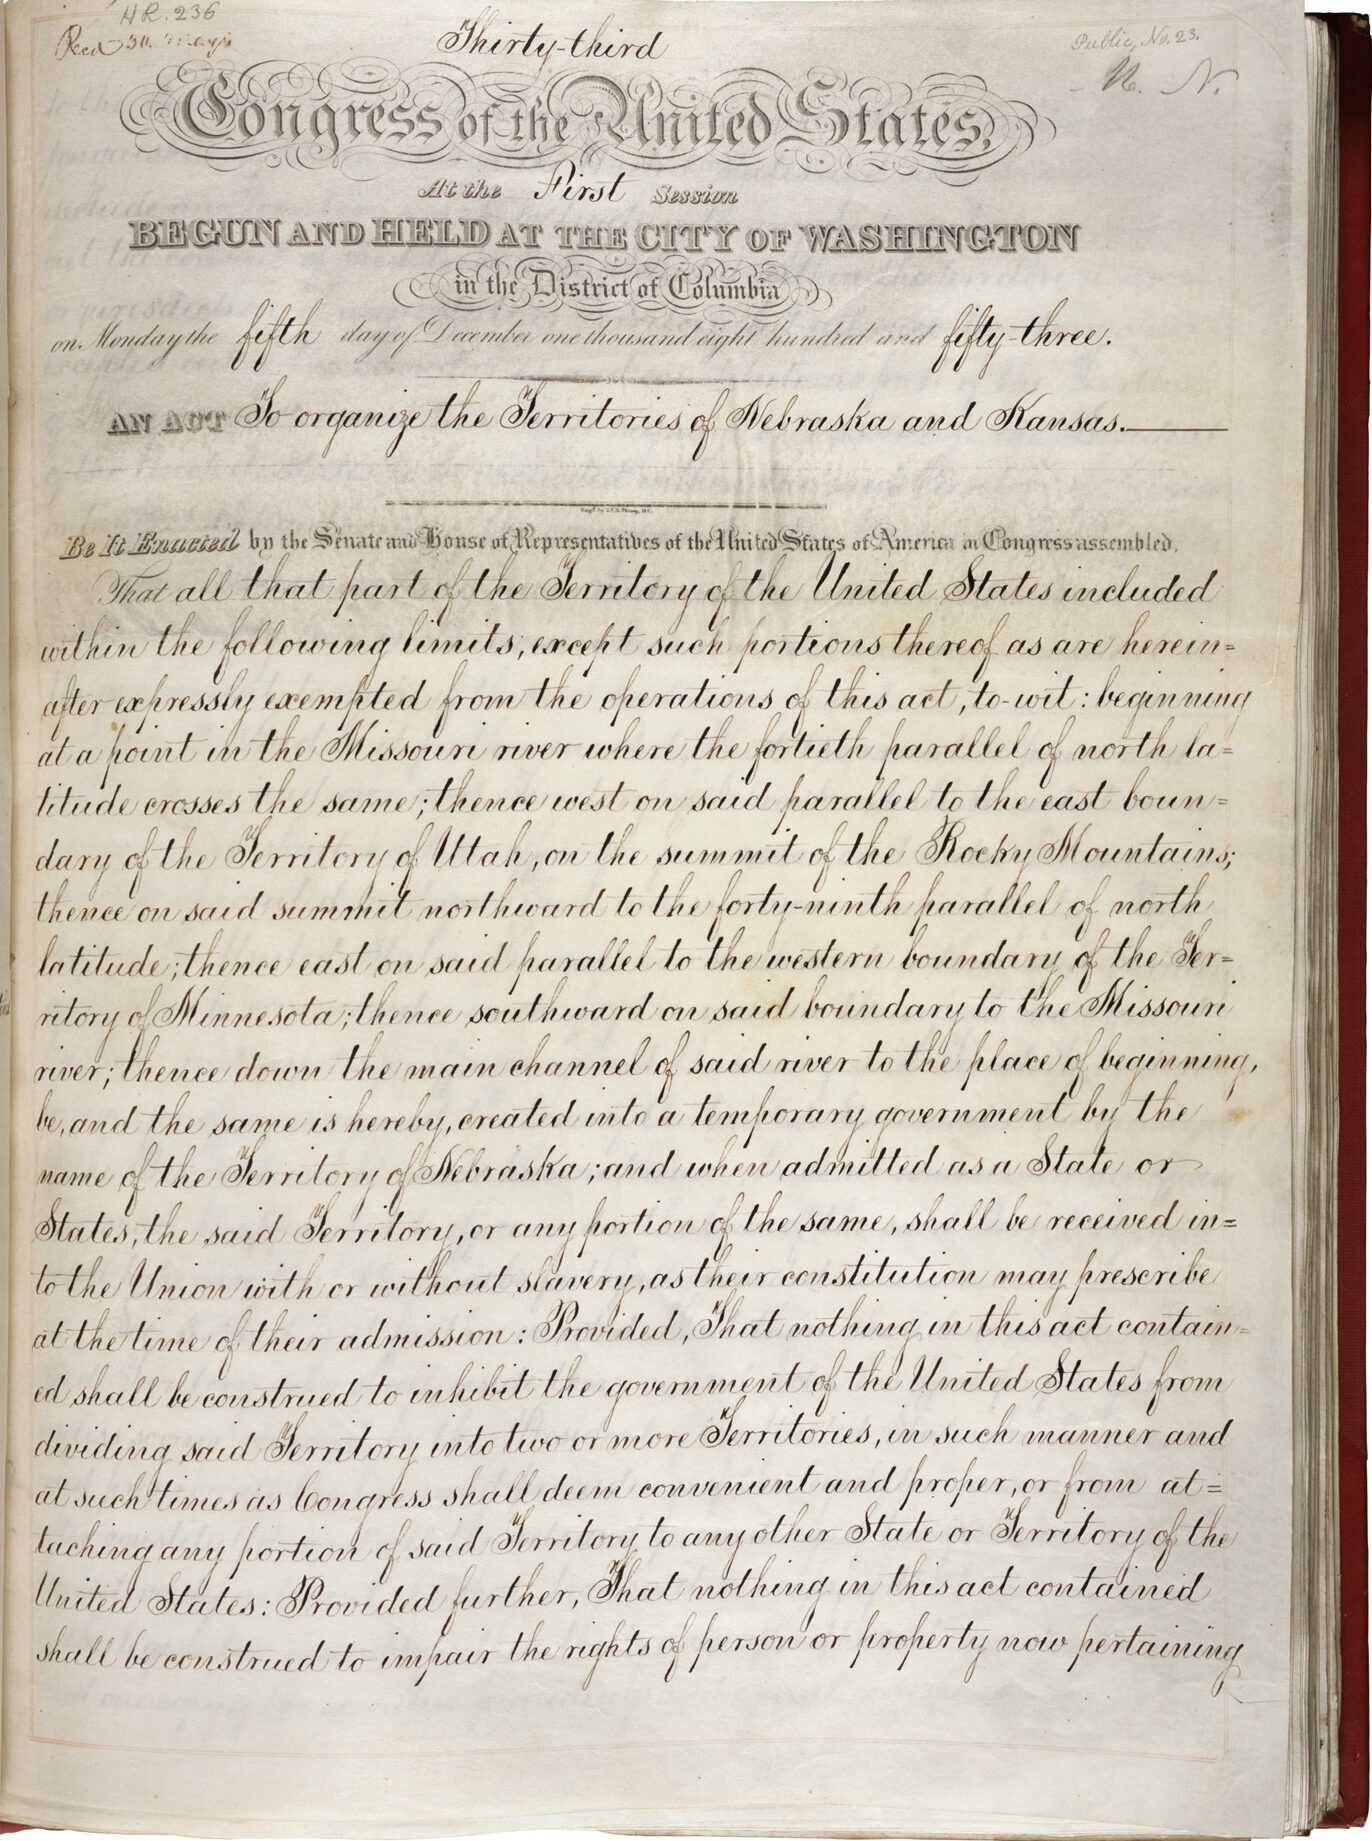 HR. 236
Recd 30. May
Public, No. 23.
N. N.
Thirty-third
Congress of the United States,
At the First Session
BEGUN AND HELD AT THE CITY OF WASHINGTON
in the District of Columbia
on Monday the fifth day of December one thousand eight hundred and fifty-three.
AN ACT To organize the Territories of Nebraska and Kansas.
Be It Enacted by the Senate and House of Representatives of the United States of America in Congress assembled,
That all that part of the Territory of the United States included
within the following limits, except such portions thereof as are herein=
after expressly exempted from the operations of this act, to-wit: beginning
at a point in the Missouri river where the fortieth parallel of north la=
titude crosses the same; thence west on said parallel to the east boun=
dary of the Territory of Utah, on the summit of the Rocky Mountains;
thence on said summit northward to the forty-ninth parallel of north
latitude; thence east on said parallel to the western boundary of the Ter=
ritory of Minnesota; thence southward on said boundary to the Missouri
river; thence down the main channel of said river to the place of beginning,
be, and the same is hereby, created into a temporary government by the
name of the Territory of Nebraska; and when admitted as a State or
States, the said Territory, or any portion of the same, shall be received in=
to the Union with or without slavery, as their constitution may prescribe
at the time of their admission: Provided, That nothing in this act contain=
ed shall be construed to inhibit the government of the United States from
dividing said Territory into two or more Territories, in such manner and
at such times as Congress shall deem convenient and proper, or from at=
taching any portion of said Territory to any other State or Territory of the
United States: Provided further, That nothing in this act contained
shall be construed to impair the rights of person or property now pertaining